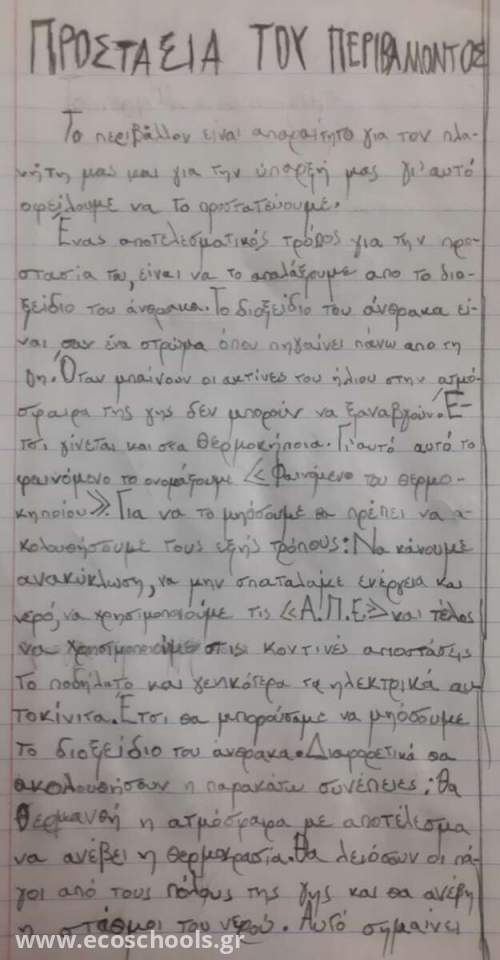 ΠΡΟΣΤΑΣΙΑ ΤΟΥ ΠΕΡΙΒΑΛΛΟΝΤΟΣ
Το περιβάλλον είναι απαραίτητο για τον πλα-
νήτη μας και για την ύπαρξή μας γι'αυτό
οφείλουμε να το προστατεύουμε.
Ένας αποτελεσματικός τρόπος για την προ-
στασία του, είναι να το απαλάξουμε απο το διο-
ξείδιο του άνθρακα. Το διοξείδιο του άνθρακα εί-
ναι σαν ένα στρώμα όπου πηγαίνει πάνω απο τη
Γη. Όταν μπαίνουν οι ακτίνες του ήλιου στην ατμό-
σφαιρα της γης δεν μπορούν να ξαναβγούν. Έ-
τσι γίνεται και στα θερμοκήπια. Γι'αυτό αυτό το
φαινόμενο το ονομάζουμε <<Φαινόμενο του θερμο-
κηπίου>>. Για να το μιώσουμε θα πρέπει να α-
κολουθήσουμε τους εξής τρόπους: Να κάνουμε
ανακύκλωση, να μην σπαταλάμε ενέργεια και
νερό, να χρησιμοποιούμε τις <<Α.Π.Ε>> και τέλος
να χρησιμοποιούμε στις κοντινές αποστάσεις
το ποδήλατο και γενικότερα τα ηλεκτρικά αυ-
τοκίνιτα. Έτσι θα μπορούσαμε να μιώσουμε
το διοξείδιο του άνθρακα. Διαφορετικά θα
ακολουθήσουν η παρακάτω συνέπειες: Θα
θερμανθή η ατμόσφαρα με αποτέλεσμα
να ανέβει η θερμοκρασία. Θα λειόσουν οι πά-
γοι από τους πόλους της γης και θα ανέβη
η στάθμοι του νερού. Αυτό σημαίνει
www.ecoschools.gr